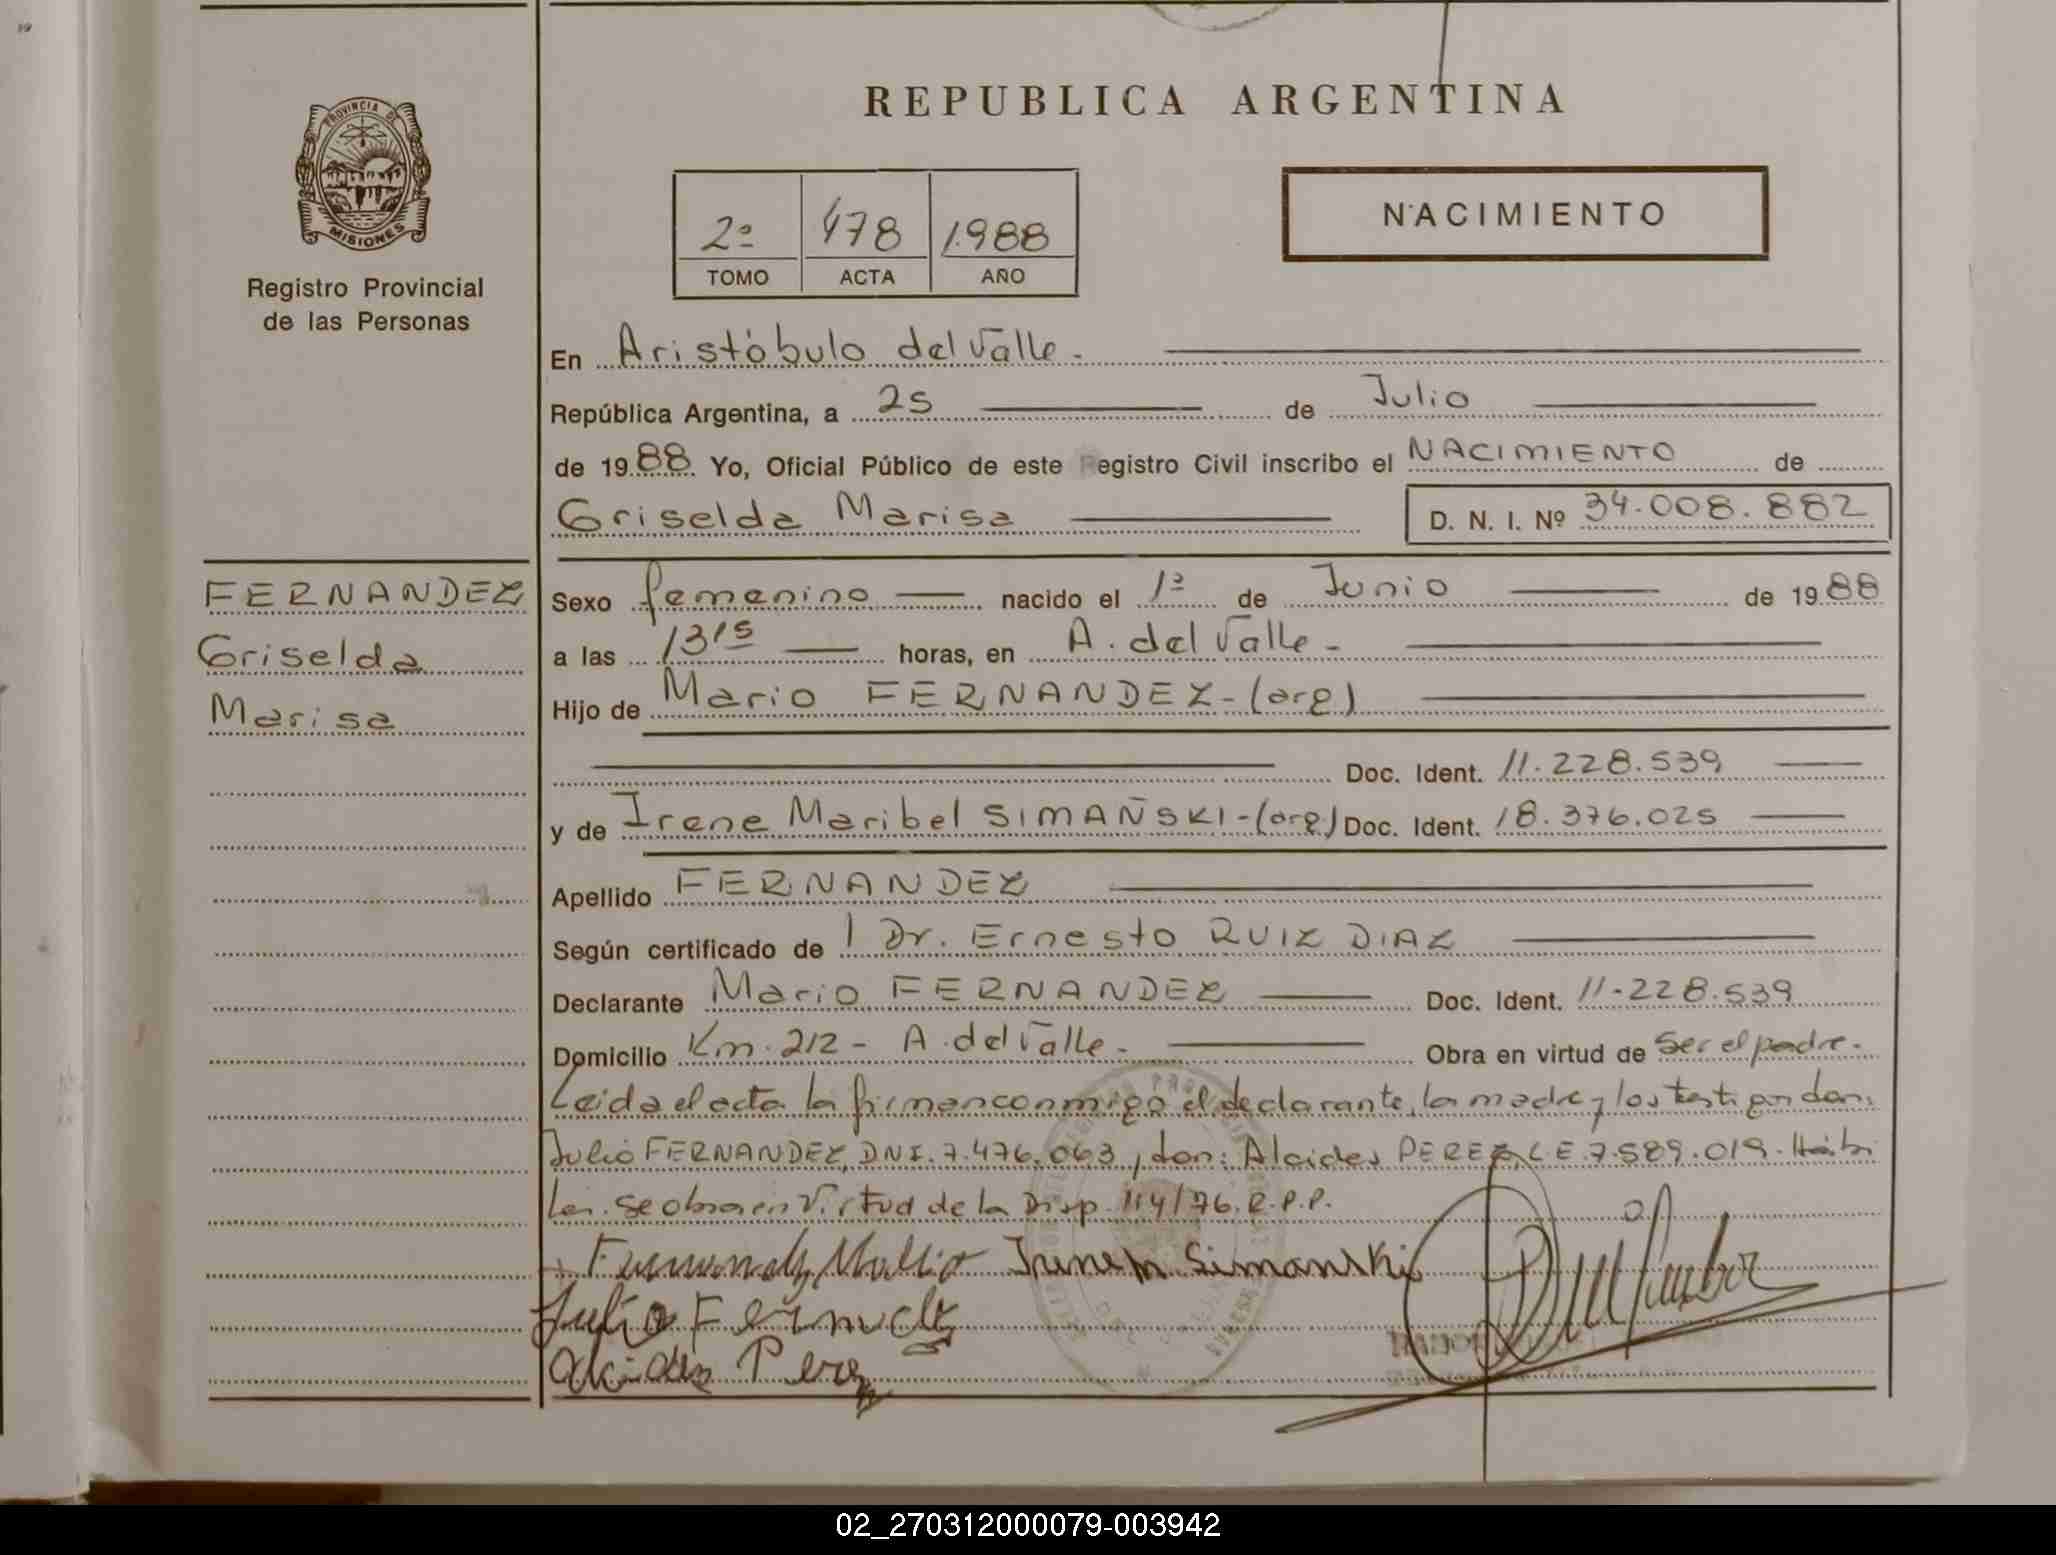 REPUBLICA ARGENTINA
PROVINCIA DE
MISIONES
Registro Provincial
de las Personas
2º 478 1988
TOMO ACTA AÑO
NACIMIENTO
En Aristóbulo del Valle.-
República Argentina, a 25 de Julio
de 1988 Yo, Oficial Público de este Registro Civil inscribo el NACIMIENTO de
Griselda Marisa D. N. I. Nº 34.008.882
FERNANDEZ
Griselda
Marisa
Sexo femenino nacido el 1º de Junio de 1988
a las 13 15 horas, en A. del Valle.-
Hijo de Mario FERNANDEZ-(arg)
Doc. Ident. 11.228.539
y de Irene Maribel SIMAÑSKI-(arg) Doc. Ident. 18.376.025
Apellido FERNANDEZ
Según certificado de l Dr. Ernesto RUIZ DIAZ
Declarante Mario FERNANDEZ Doc. Ident. 11-228.539
Domicilio Km. 212- A. del Valle.- Obra en virtud de Ser el padre.-
Leida el acta la firman conmigo el declarante, la madre y los testigos don:
Julio FERNANDEZ, DNI. 7.476.063, don: Alcides PEREZ, L.E. 7.589.019. Hábi
les. Se obra en Virtud de la Disp. 114/76. R.P.P.
Irene M Simanski
Julio
Alcides Perez
02_270312000079-003942